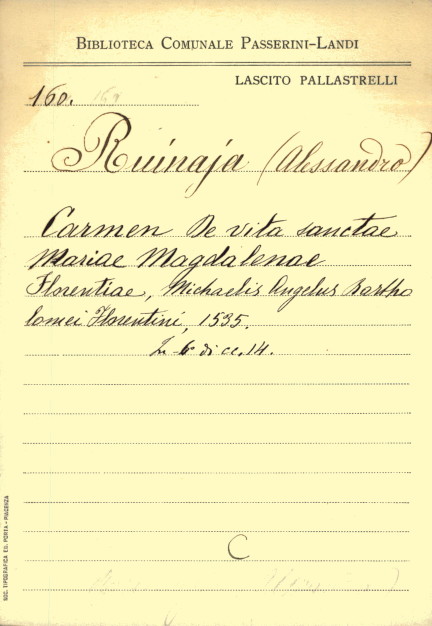 BIBLIOTECA COMUNALE PASSERINI-LANDI
LASCITO PALLASTRELLI
160. 160
Ruinaja (Alessandro)
Carmen De vita sanctae
Mariae Magdalenae
Florentiae, Michaelis Angelus Bartho
lomei Florentini, 1535.
In 6° di cc. 14.
C
SOC. TIPOGRAFICA ED. PORTA - PIACENZA